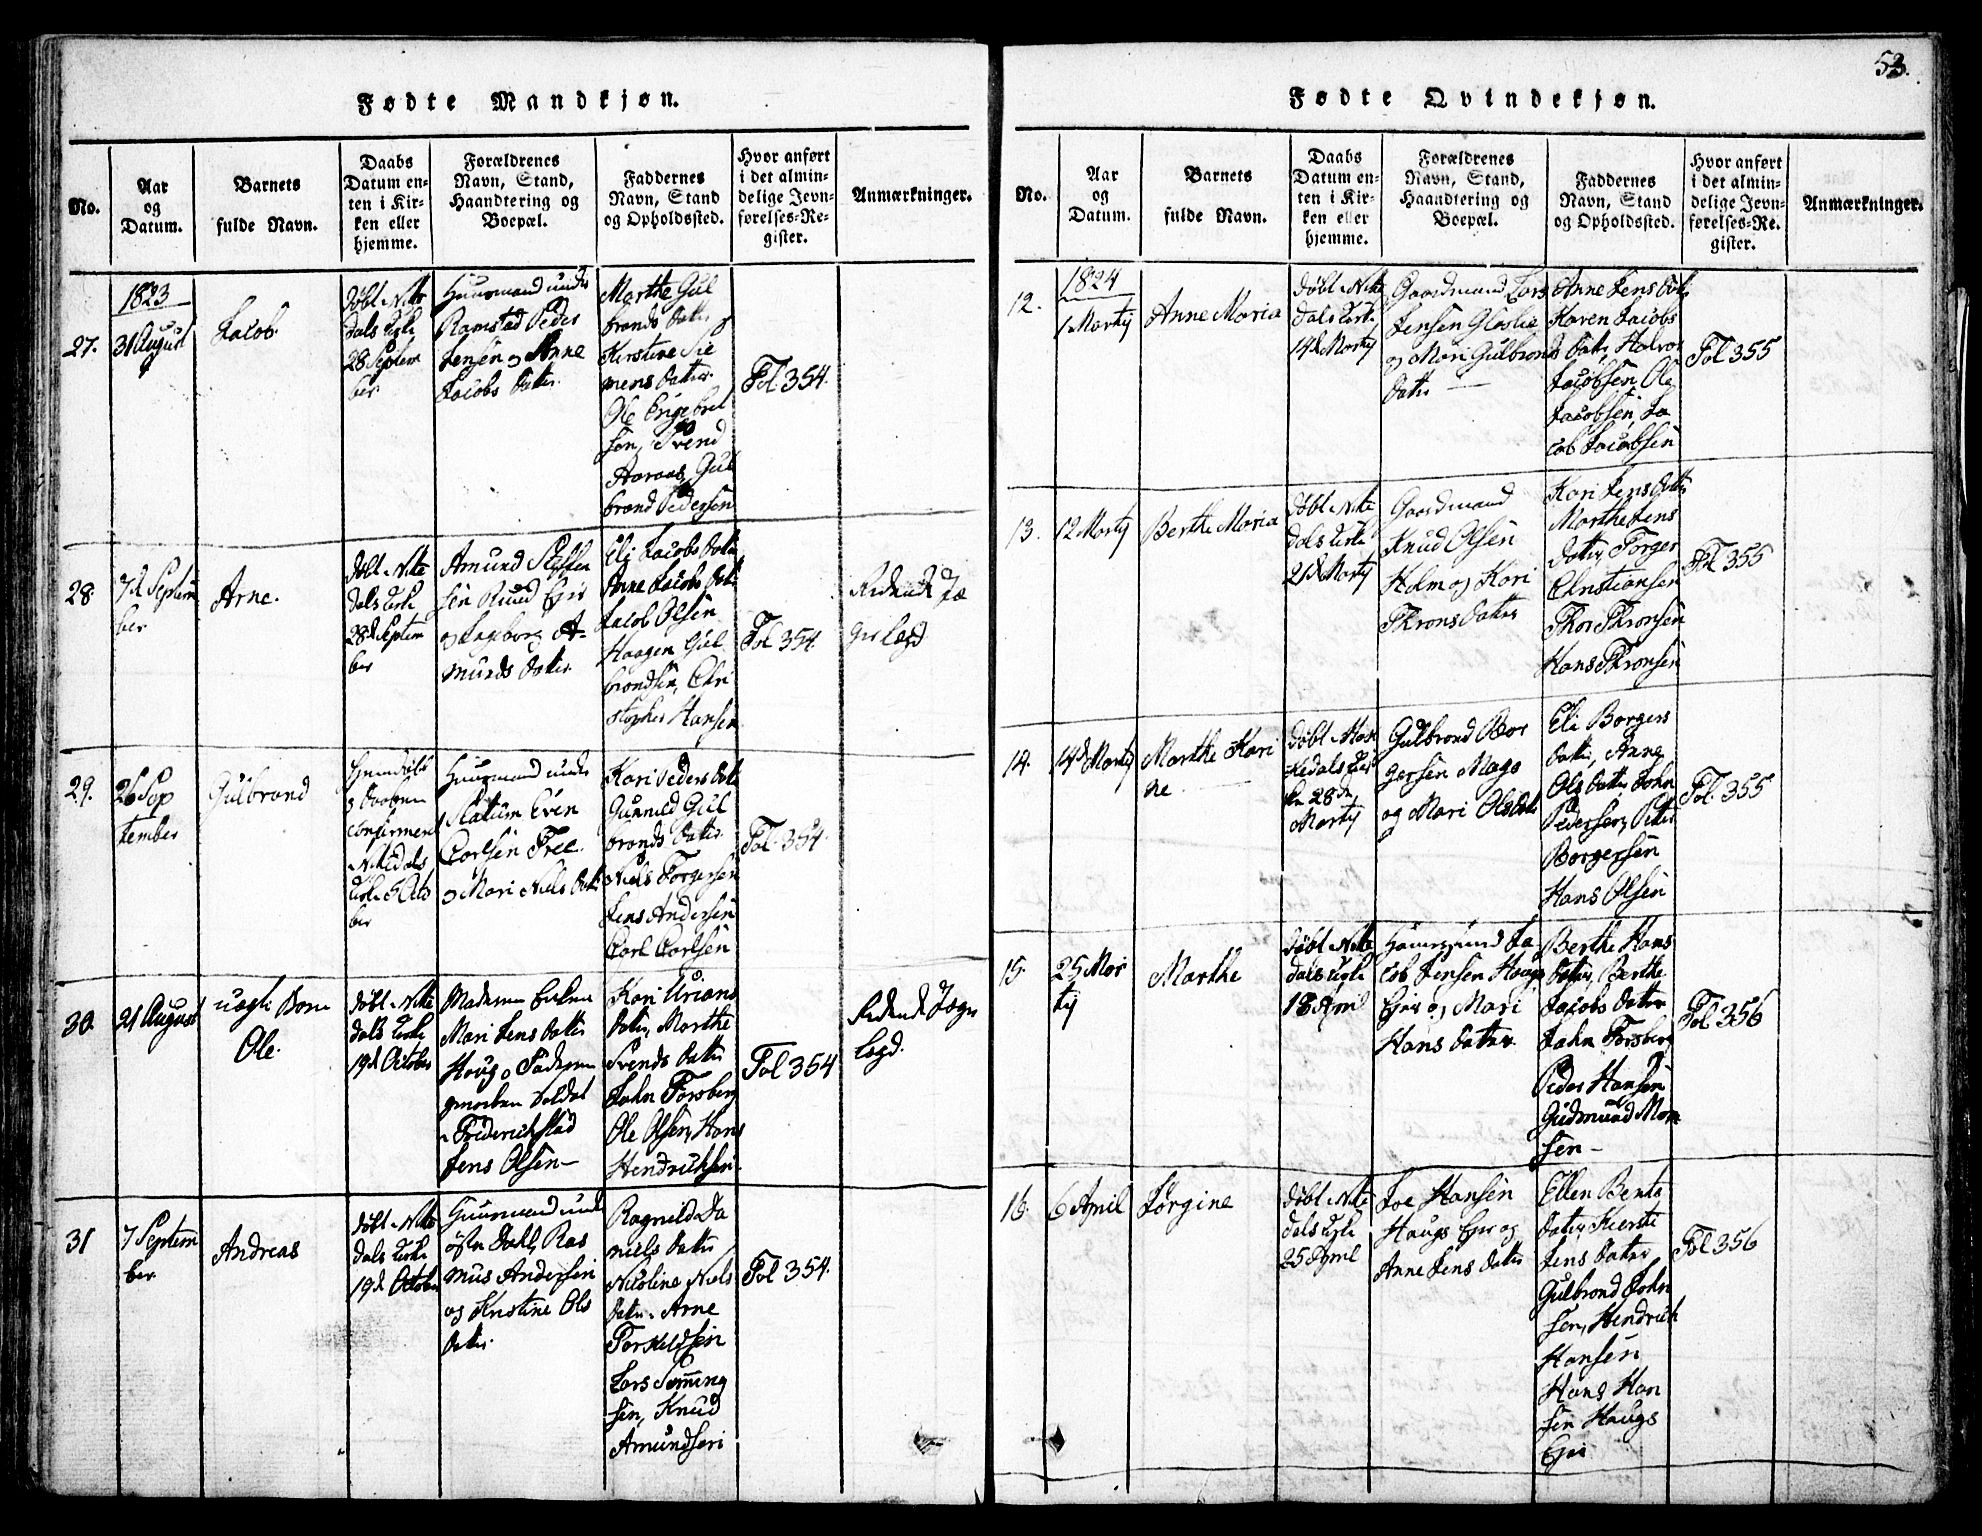 53.
Fødte Mandkjøn.
No.
Aar
og
Datum.
Barnets
fulde Navn.
Daabs
Datum en-
ten i Kir-
ken eller
hjemme.
Forældrenes
Navn, Stand,
Haandtering og
Boepæl.
Faddernes
Navn, Stand
og Opholdssted.
Hvor anført
i det almin-
delige Jevn-
førelses-Re-
gister.
Anmærkninger.
27.
1823
31 August
Jacob
døbt i Nite
dals Kirke
28 Septem
ber
Huusmand under
Ramstad Peder
Jensen og Anne
Jacobs Datter
Marthe Gul
brands Datter
Kirstine Sie
mens Datter
Ole Engebret
sen, Svend
Aaraas, Gul
brand Pedersen
Fol. 354.
28
7de Septem
ber
Arne.
døbt i Nite
dals Kirke
28de Septem
ber
Amund Steffen
sen Ruud Eier
og Ingborg A-
munds Datter
Eli Jacobs Datter
Anne Jacobs Dat.
Jacob Olsen
Haagen Gul
brandsen, Chri
stopher Hansen
Fol 354.
29.
26 Sep
tember
Gulbrand
confirmeret
Nitedals
Kirke 5 Octo
ber
Huusmand under
Slatum Even
Carlsen Free.
og Mari Niels Datr
Kari Peders Dat.
Gunnild Gul
brands Datter
Niels Torgersen
Jens Andersen
Carl Carlsen
Fol. 354.
30.
21 August
uægte Barn
Ole.
døbt i Nite
dals Kirke
19de October
Mari Jens Datter
Haug
Soldat
i Friderichstad
Jens Olsen—
Kari Urians
Datter, Marthe
Svends Datter
John Forsberg
Ole Olsen, Hans
Hendrichsen.
Fol 354
31
7 Septem
ber
Andreas
døbt i Nite
dals Kirke
19de October
Huusmand under
Dahl, Ras
mus Andersen
og Kristine Ols
Datter
Ragnild Da
niels Datter
Nicoline Niels
Datter, Arne
Torkildsen
Lars Semming
sen, Knud
Amundsen
Fol 354.
Fødte Qvindekjøn.
No.
Aar
og
Datum.
Barnets
fulde Navn.
Daabs
Datum en-
ten i Kir-
ken eller
hjemme.
Forældrenes
Navn, Stand,
Haandtering og
Boepæl.
Faddernes
Navn, Stand
og Opholdssted.
Hvor anført
i det almin-
delige Jevn-
førelses-Re-
gister.
Anmærkninger.
12.
1824
1 Martij
Anne Maria
døbt i Nite
dals Kirke
14de Martij
Gaardmand Lars
Jensen Gløslie
og Mari Gulbrands
Datter
Anne Jens Datr
Karen Jacobs
Datter, Halvor
Jacobsen, Ole
Jacobsen, Ja
cob Jacobsen
Fol 355
13.
12 Martij
Berthe Maria
døbt i Nite
dals Kirke
21de Martij
Gaardmand
Knud Olsen
Holm og Kari
Throns Datter
Kari Jens Datter
Marthe Jens
Datter, Torger
Christiansen
Thor Thronsen
Hans Thronsen
Fol 355
14.
14de Martij
Marthe Kari
ne
døbt i Hak
kedals Kir
ke 28de
Martij
Gulbrand Bor
gersen Mago
og Mari Ols Datr
Eli Borgers
Datter, Anne
Ols Datter, John
Pedersen, Peter
Borgersen
Hans Olsen
Fol. 355
15.
25 Mar
tij
Marthe
døbt i Nite
dals Kirke
18 April
Huusmand Ja
cob Jensen Haug
Eier og Mari
Hans Datter
Berthe Hans
Datter, Berthe
Jacobs Datter
John Forsberg
Peder Hansen
Gudmund Mon
sen—
Fol 356
16.
6 April
Jørgine
døbt i Nite
dals Kirke
25 April
Joe Hansen
Haugs Eier og
Anne Jens Datter
Ellen Bents
Datter, Kierste
Jens Datter
Gulbrand John
sen, Hendrich
Hansen
Hans Han
sen Haugs
Eier
Fol 356